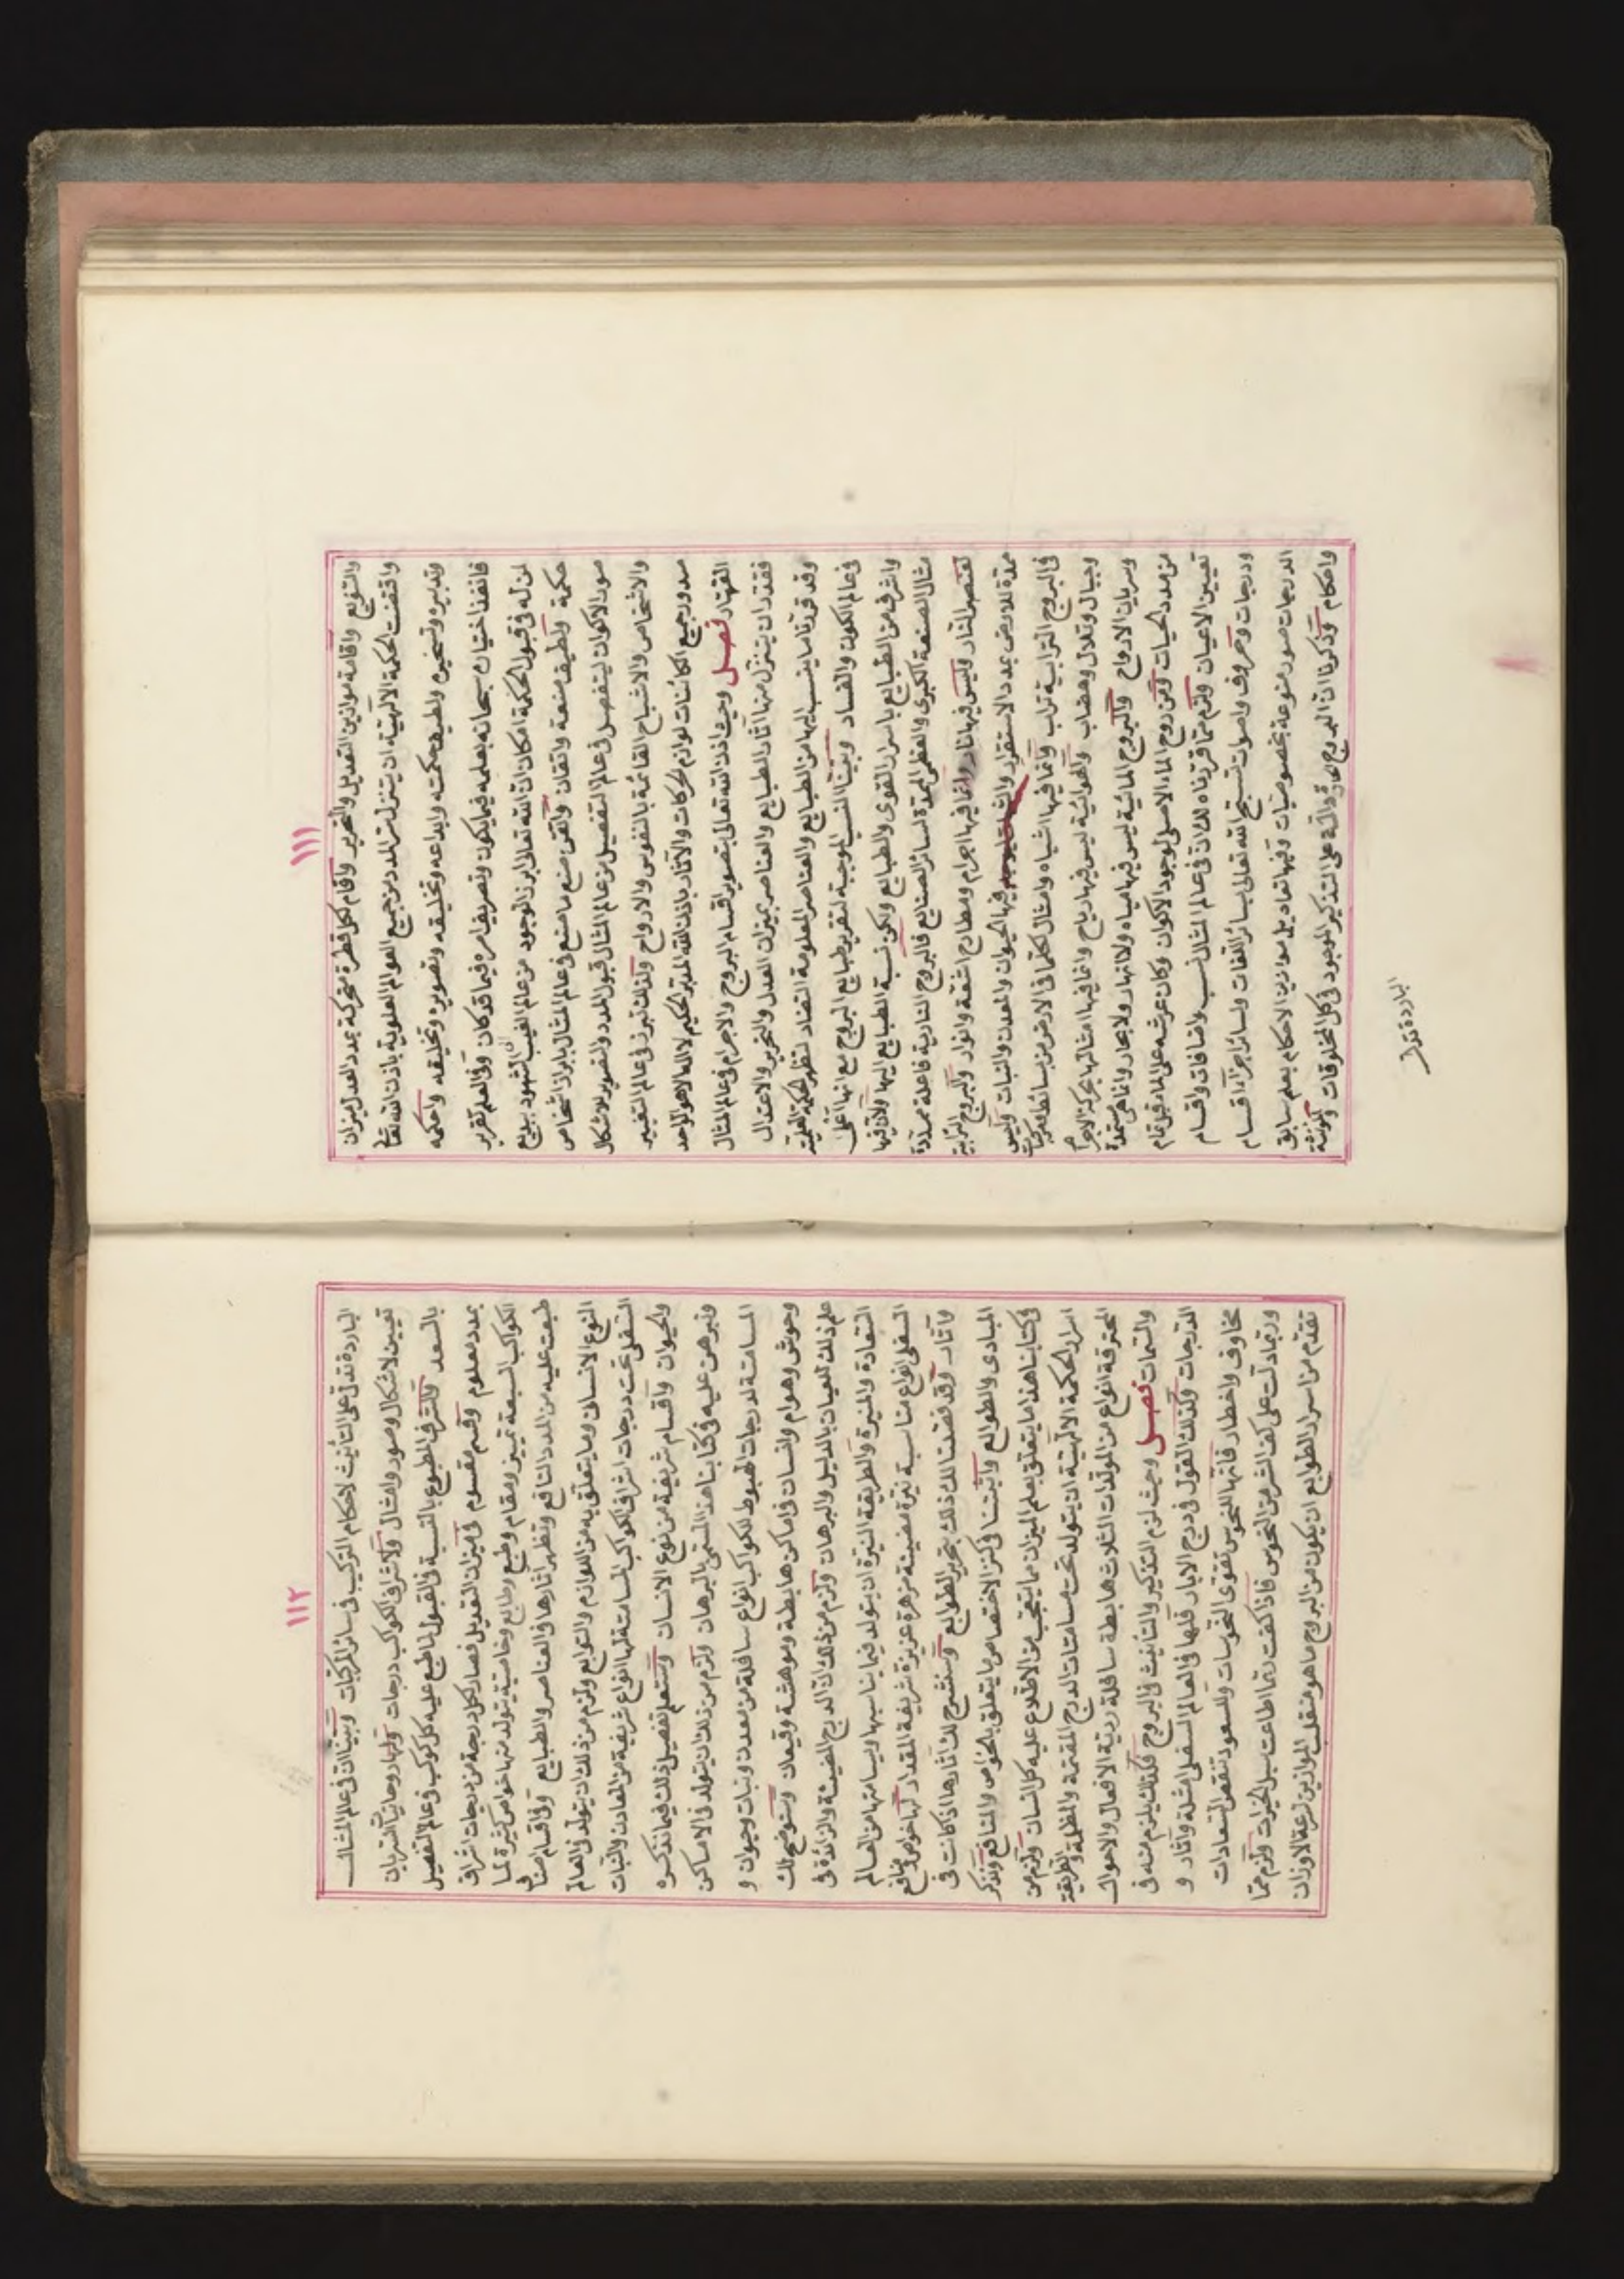 ١١١
والتنويع واقامة موازين التعديل والتحرير واقام لكل قطرة متحركة بمدد العدل ميزان
واقتضت الحكمة الالهية ان يتنزل سر المدد من جميع العوالم العلوية باذن الله تعالى
وتدبيره وتسخيره ولطيف حكمته وابداعه وتخليقه وتصويره وتخليقه واحكمه
فانفذ اختياره سبحانه بعلمه فيما يكون وتصريف امره فيما قد كان وفي العلم تقرير
لمن له في قبول الحكمة امكان ان الله تعالى ابرز الوجود من عالم الغيب الى الشهود ببديع
حكمة ولطيف صنعة واتقان واتقن صنع ما صنع في عالم المثال بابراز اشخاص
صور الاكوان ليتفصل في عالم التفصيل من عالم المثال قبول المدد والتصوير للاشكال
والاشخاص والاشباح القائمة بالنفوس والارواح ولذلك تبرز في عالم التغيير
صدور جميع الكائنات لوازم الحركات والآثار باذن الله المدبر الحكيم لا اله الا هو الواحد
القهار فصل وحيث اذن الله تعالى بتصوير اقسام البروج والاجرام في عالم المثال
فقد ان يتنزل منها آثار الطبايع والعناصر بميزان العدل والتحرير والاعتدال
وقد قررنا ما ينسب اليها من الطبايع والعناصر المعلومة التضاد لتظهر الحكمة العلمية
في عالم الكون والفساد وبيّنا النسب الموجبة لتقرير طبايع البروج مع انها اعلى
واشرف من الطبايع باسرار القوى والطبايع ولكن نسبة الطبايع اليها ولان فيها
مثال الصنعة الكبرى والعظمى الممدة لسائر الصنايع فالبروج النارية فاعلة ممددة
لعنصر النار وليس فيها نار وانما فيها اجرام ومطارح اشعة وانوار والبروج الترابية
ممدة للارض بمدد الاستقرار والثبات فيها الحيوان والمعدن والنبات وليس
في البروج الترابية تراب وانما فيها اشباه وامثال لكلما في الارض من بسائط ومركبات
وجبال وتلال وهضاب والهوائية ليس فيها رياح وانما فيها امثالها بحركة الاجرام
وسريان الارواح والبروج المائية ليس فيها مياه ولا انهار ولا بحار وانما هي مستمدة
من مدد الحيات ومن روح الماء الاصلي لوجود الاكوان وكان عرشه على الماء قبل تمام
تعيين الاعيان ولزم مما قررناه لك ان في عالم المثال نسب واضافات واقسام
ودرجات وحروف واصوات تسبح الله تعالى بسائر اللغات ولسائر اجزاء اقسام
الدرجات صور متنوعة بخصوصيات وفيها تعاديل موازين الاحكام بعلم سابق
واحكام وذكرنا ان البروج الحارة دالة على التذكير الموجود في كل المخلوقات والمؤنثة
الباردة تدل
١١٢
الباردة تدل على التأنيث لاحكام التركيب في سائر المركبات وبيّنا ان في عالم المثال
تعيين لاشكال وصور وامثال ولاشراف الكواكب درجات ولها روحانيات السريان
بالسعد والشرف المطبوع بالنسبة في القبول لما طبع عليه كل كوكب في عالم التفصيل
بمدد معلوم وقسم مقسوم في ميزان التعديل فصار لكل درجة من درجات اشراف
الكواكب السبعة تمييز ومقام وطبع وطابع وخاصية يتولد منها خواص كثيرة لما
طبعت عليه من المدد النافع وتظهر آثارها في العناصر والطبايع وفي اقسام صناف
النوع الانسان وما يتعلق به من اللوازم والتوابع ولزم من ذلك ان يتولد في العالم
السفلى تحت درجات اشراف الكواكب المسامتة لها انواع شريفة من المعادن والنبات
والحيوان واقسام شريفة من نوع الانسان وستعلم تفصيل ذلك فيما نذكره
ونبرهن عليه في كتابنا هذا المسمى بالبرهان ولزم من ذلك ان يتولد في الاماكن
المسامتة لدرجات الهبوط للكواكب انواع سافلة من معدن ونبات وحيوان و
وحوش وهوام وانسان في اماكن هابطة وموهشة وقيعان وسنوضح لك
علم ذلك للعيان بالدليل والبرهان ولزم من ذلك ان الدرج المضيئة والزائدة في
السعادة والمنيرة والطريقة النيرة ان يتولد فيما يناسبها ويسامتها من العالم
السفلى انواع مناسبة نيرة مضيئة مزهرة عزيزة شريفة المقدار لها خواص ومنافع
وآثار وقد فصلنا لك ذلك بتحرير الطوابع وسنشرح لك آثارها اذ كانت في
المبادى والطوالع واثبتنا في كنز الاختصاص ما يتعلق بالخواص والمنافع وسنذكر
في كتابنا هذا ما يتعلق بعلم الميزان مما يتعجب من الاطلاع عليه كل انسان ولزم من
اسرار الحكمة الالهية ان يتولد تحت مسامتات الدرج المقتمة والمظلمة والطريقة
المحترقة انواع من المولدات الثلاث هابطة سافلة ردية الافعال والاحوال
والسمات فصل وحيث لزم التذكير والتأنيث في البروج فكذلك يلزم منه في
الدرجات وكذلك القول في درج الابار فلها في العالم السفلى امثلة وآثار و
مخاوف واخطار فانها للنحوس تقوى النحوسات وللسعود تنقص السعادات
وربما دلت على كف الشر من النحوس فاذا كفت ربما اطاعت سبل الخيرات ولزم مما
تقدم من اسرار الطوابع ان يكون من البروج ما هو منقلب الموازين لسرعة الاوزان